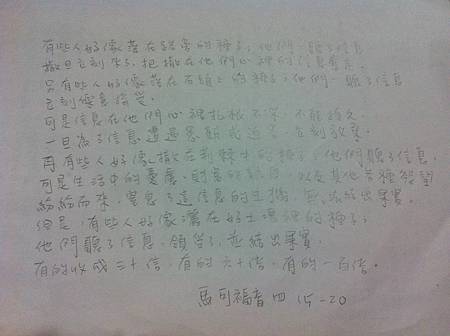 有些人好像落在路旁的種子;他們一聽了信息
撒旦立刻來了,把撒在他們心裡的信息奪走。
另有些人好像落在石頭上的種子;他們一聽了信息
立刻樂意接受。
可是信息在他們心裡扎根不深,不能持久,
一旦為了信息遭遇患難或迫害,立刻放棄。
再有些人好像撒在荊棘中的種子,他們聽了信息,
可是生活中的憂慮、財富的誘惑,以及其他各種慾望
紛紛而來,窒息了這信息的生機,無法結出果實。
但是,有些人好像灑在好土壤裡的種子;
他們聽了信息,領受了,並結出果實,
有的收成三十倍,有的六十倍,有的一百倍。
馬可福音四 15-20